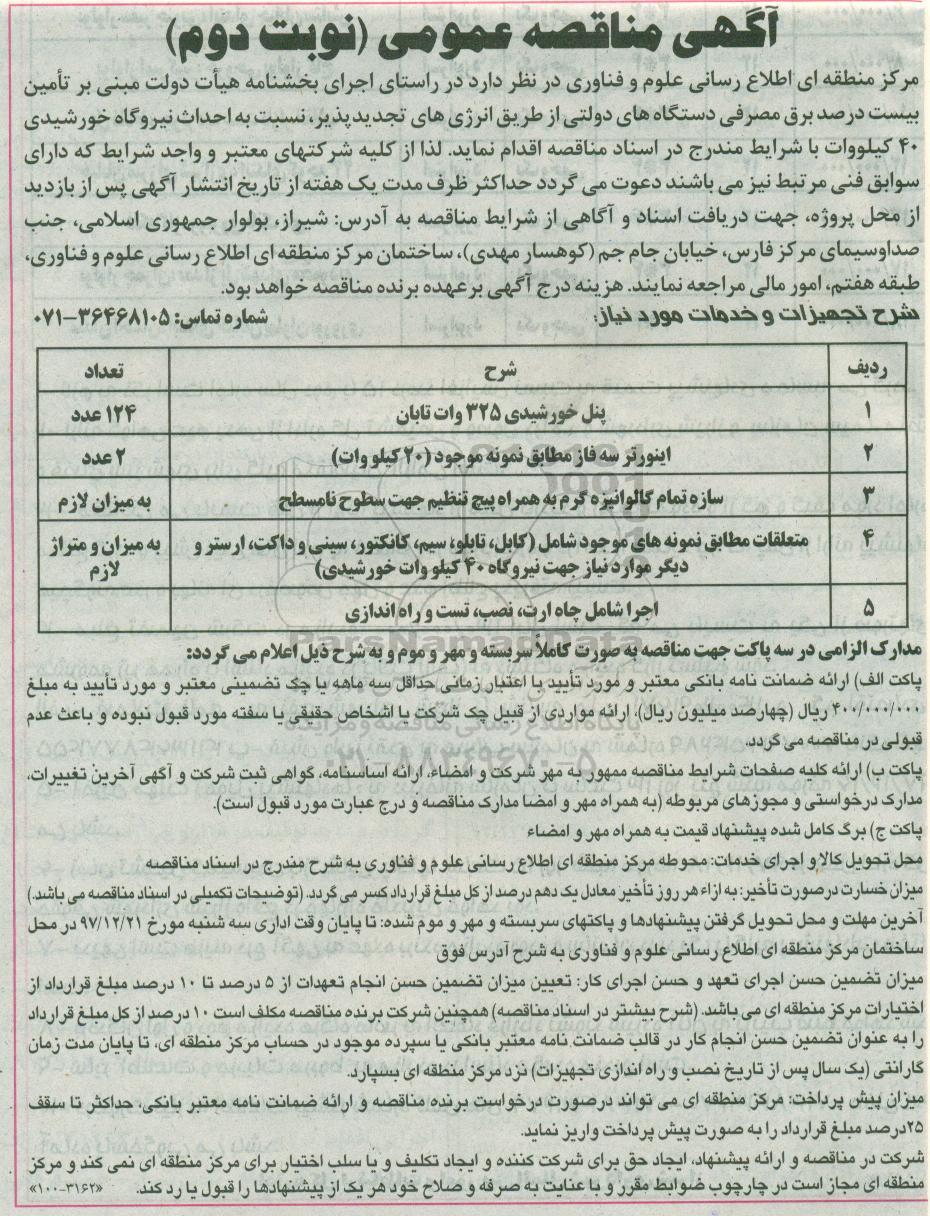 آگهی مناقصه عمومی (نوبت دوم)
مرکز منطقه ای اطلاع رسانی علوم و فناوری در نظر دارد در راستای اجرای بخشنامه هیأت دولت مبنی بر تأمین
بیست درصد برق مصرفی دستگاه های دولتی از طریق انرژی های تجدیدپذیر، نسبت به احداث نیروگاه خورشیدی
۴۰ کیلووات با شرایط مندرج در اسناد مناقصه اقدام نماید. لذا از کلیه شرکتهای معتبر و واجد شرایط که دارای
سوابق فنی مرتبط نیز می باشند دعوت می گردد حداکثر ظرف مدت یک هفته از تاریخ انتشار آگهی پس از بازدید
از محل پروژه، جهت دریافت اسناد و آگاهی از شرایط مناقصه به آدرس: شیراز، بولوار جمهوری اسلامی، جنب
صداوسیمای مرکز فارس، خیابان جام جم (کوهسار مهدی)، ساختمان مرکز منطقه ای اطلاع رسانی علوم و فناوری،
طبقه هفتم، امور مالی مراجعه نمایند. هزینه درج آگهی برعهده برنده مناقصه خواهد بود.
شرح تجهیزات و خدمات مورد نیاز: شماره تماس: ۳۶۴۶۸۱۰۵-۰۷۱
ردیف شرح تعداد
۱ پنل خورشیدی ۳۲۵ وات تابان ۱۲۴ عدد
۲ اینورتر سه فاز مطابق نمونه موجود (۲۰ کیلو وات) ۲ عدد
۳ سازه تمام گالوانیزه گرم به همراه پیچ تنظیم جهت سطوح نامسطح به میزان لازم
۴ متعلقات مطابق نمونه های موجود شامل (کابل، تابلو، سیم، کانکتور، سینی و داکت، ارستر و به میزان و متراژ
دیگر موارد نیاز جهت نیروگاه ۴۰ کیلو وات خورشیدی) لازم
۵ اجرا شامل چاه ارت، نصب، تست و راه اندازی
ParsNamadData
پایگاه اطلاع رسانی مناقصه و مزایده
مدارک الزامی در سه پاکت جهت مناقصه به صورت کاملاً سربسته و مهر و موم و به شرح ذیل اعلام می گردد:
پاکت الف) ارائه ضمانت نامه بانکی معتبر و مورد تأیید با اعتبار زمانی حداقل سه ماهه یا چک تضمینی معتبر و مورد تأیید به مبلغ
۴۰۰/۰۰۰/۰۰۰ ریال (چهارصد میلیون ریال). ارائه مواردی از قبیل چک شرکت یا اشخاص حقیقی یا سفته مورد قبول نبوده و باعث عدم
قبولی در مناقصه می گردد.
پاکت ب) ارائه کلیه صفحات شرایط مناقصه ممهور به مهر شرکت و امضاء، ارائه اساسنامه، گواهی ثبت شرکت و آگهی آخرین تغییرات،
مدارک درخواستی و مجوزهای مربوطه (به همراه مهر و امضا مدارک مناقصه و درج عبارت مورد قبول است).
پاکت ج) برگ کامل شده پیشنهاد قیمت به همراه مهر و امضاء
محل تحویل کالا و اجرای خدمات: محوطه مرکز منطقه ای اطلاع رسانی علوم و فناوری به شرح مندرج در اسناد مناقصه
میزان خسارت درصورت تأخیر: به ازاء هر روز تأخیر معادل یک دهم درصد از کل مبلغ قرارداد کسر می گردد. (توضیحات تکمیلی در اسناد مناقصه می باشد.)
آخرین مهلت و محل تحویل گرفتن پیشنهادها و پاکتهای سربسته و مهر و موم شده: تا پایان وقت اداری سه شنبه مورخ ۹۷/۱۲/۲۱ در محل
ساختمان مرکز منطقه ای اطلاع رسانی علوم و فناوری به شرح آدرس فوق
میزان تضمین حسن اجرای تعهد و حسن اجرای کار: تعیین میزان تضمین حسن انجام تعهدات از ۵ درصد تا ۱۰ درصد مبلغ قرارداد از
اختیارات مرکز منطقه ای می باشد. (شرح بیشتر در اسناد مناقصه) همچنین شرکت برنده مناقصه مکلف است ۱۰ درصد از کل مبلغ قرارداد
را به عنوان تضمین حسن انجام کار در قالب ضمانت نامه معتبر بانکی یا سپرده موجود در حساب مرکز منطقه ای، تا پایان مدت زمان
گارانتی (یک سال پس از تاریخ نصب و راه اندازی تجهیزات) نزد مرکز منطقه ای بسپارد.
میزان پیش پرداخت: مرکز منطقه ای می تواند درصورت درخواست برنده مناقصه و ارائه ضمانت نامه معتبر بانکی، حداکثر تا سقف
۲۵درصد مبلغ قرارداد را به صورت پیش پرداخت واریز نماید.
شرکت در مناقصه و ارائه پیشنهاد، ایجاد حق برای شرکت کننده و ایجاد تکلیف و یا سلب اختیار برای مرکز منطقه ای نمی کند و مرکز
منطقه ای مجاز است در چارچوب ضوابط مقرر و با عنایت به صرفه و صلاح خود هر یک از پیشنهادها را قبول یا رد کند. «۳۱۶۲-۱۰۰»